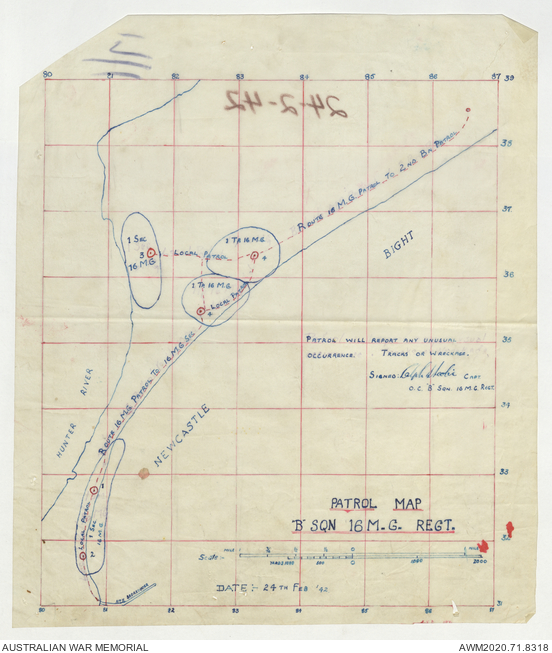 80 82 83 84 85 86 87 39
24-2-42
38
ROUTE 16 M.G PATROL TO 2ND BN PATROL
37
1 SEC
3
16 M.G
LOCAL PATROL
3 TP 16 M.G
4
BIGHT
36
2 TP 16 M.G
LOCAL PATROL
PATROL WILL REPORT ANY UNUSUAL
OCCURRENCE. TRACKS OR WRECKAGE.
35
SIGNED: CAPT
O.C. 'B' SQN. 16 M.G REGT.
ROUTE 16 M.G PATROL TO 16 M.G SEC
34
HUNTER RIVER
NEWCASTLE
33
1
LOCAL PATROL
1 SEC
16 M.G
2
PATROL MAP
'B' SQN 16 M.G. REGT.
32
SCALE:-
1000 2000
DATE:- 24TH FEB '42
80 81 82 83 84 85 86 31
AUSTRALIAN WAR MEMORIAL
AWM2020.71.8318